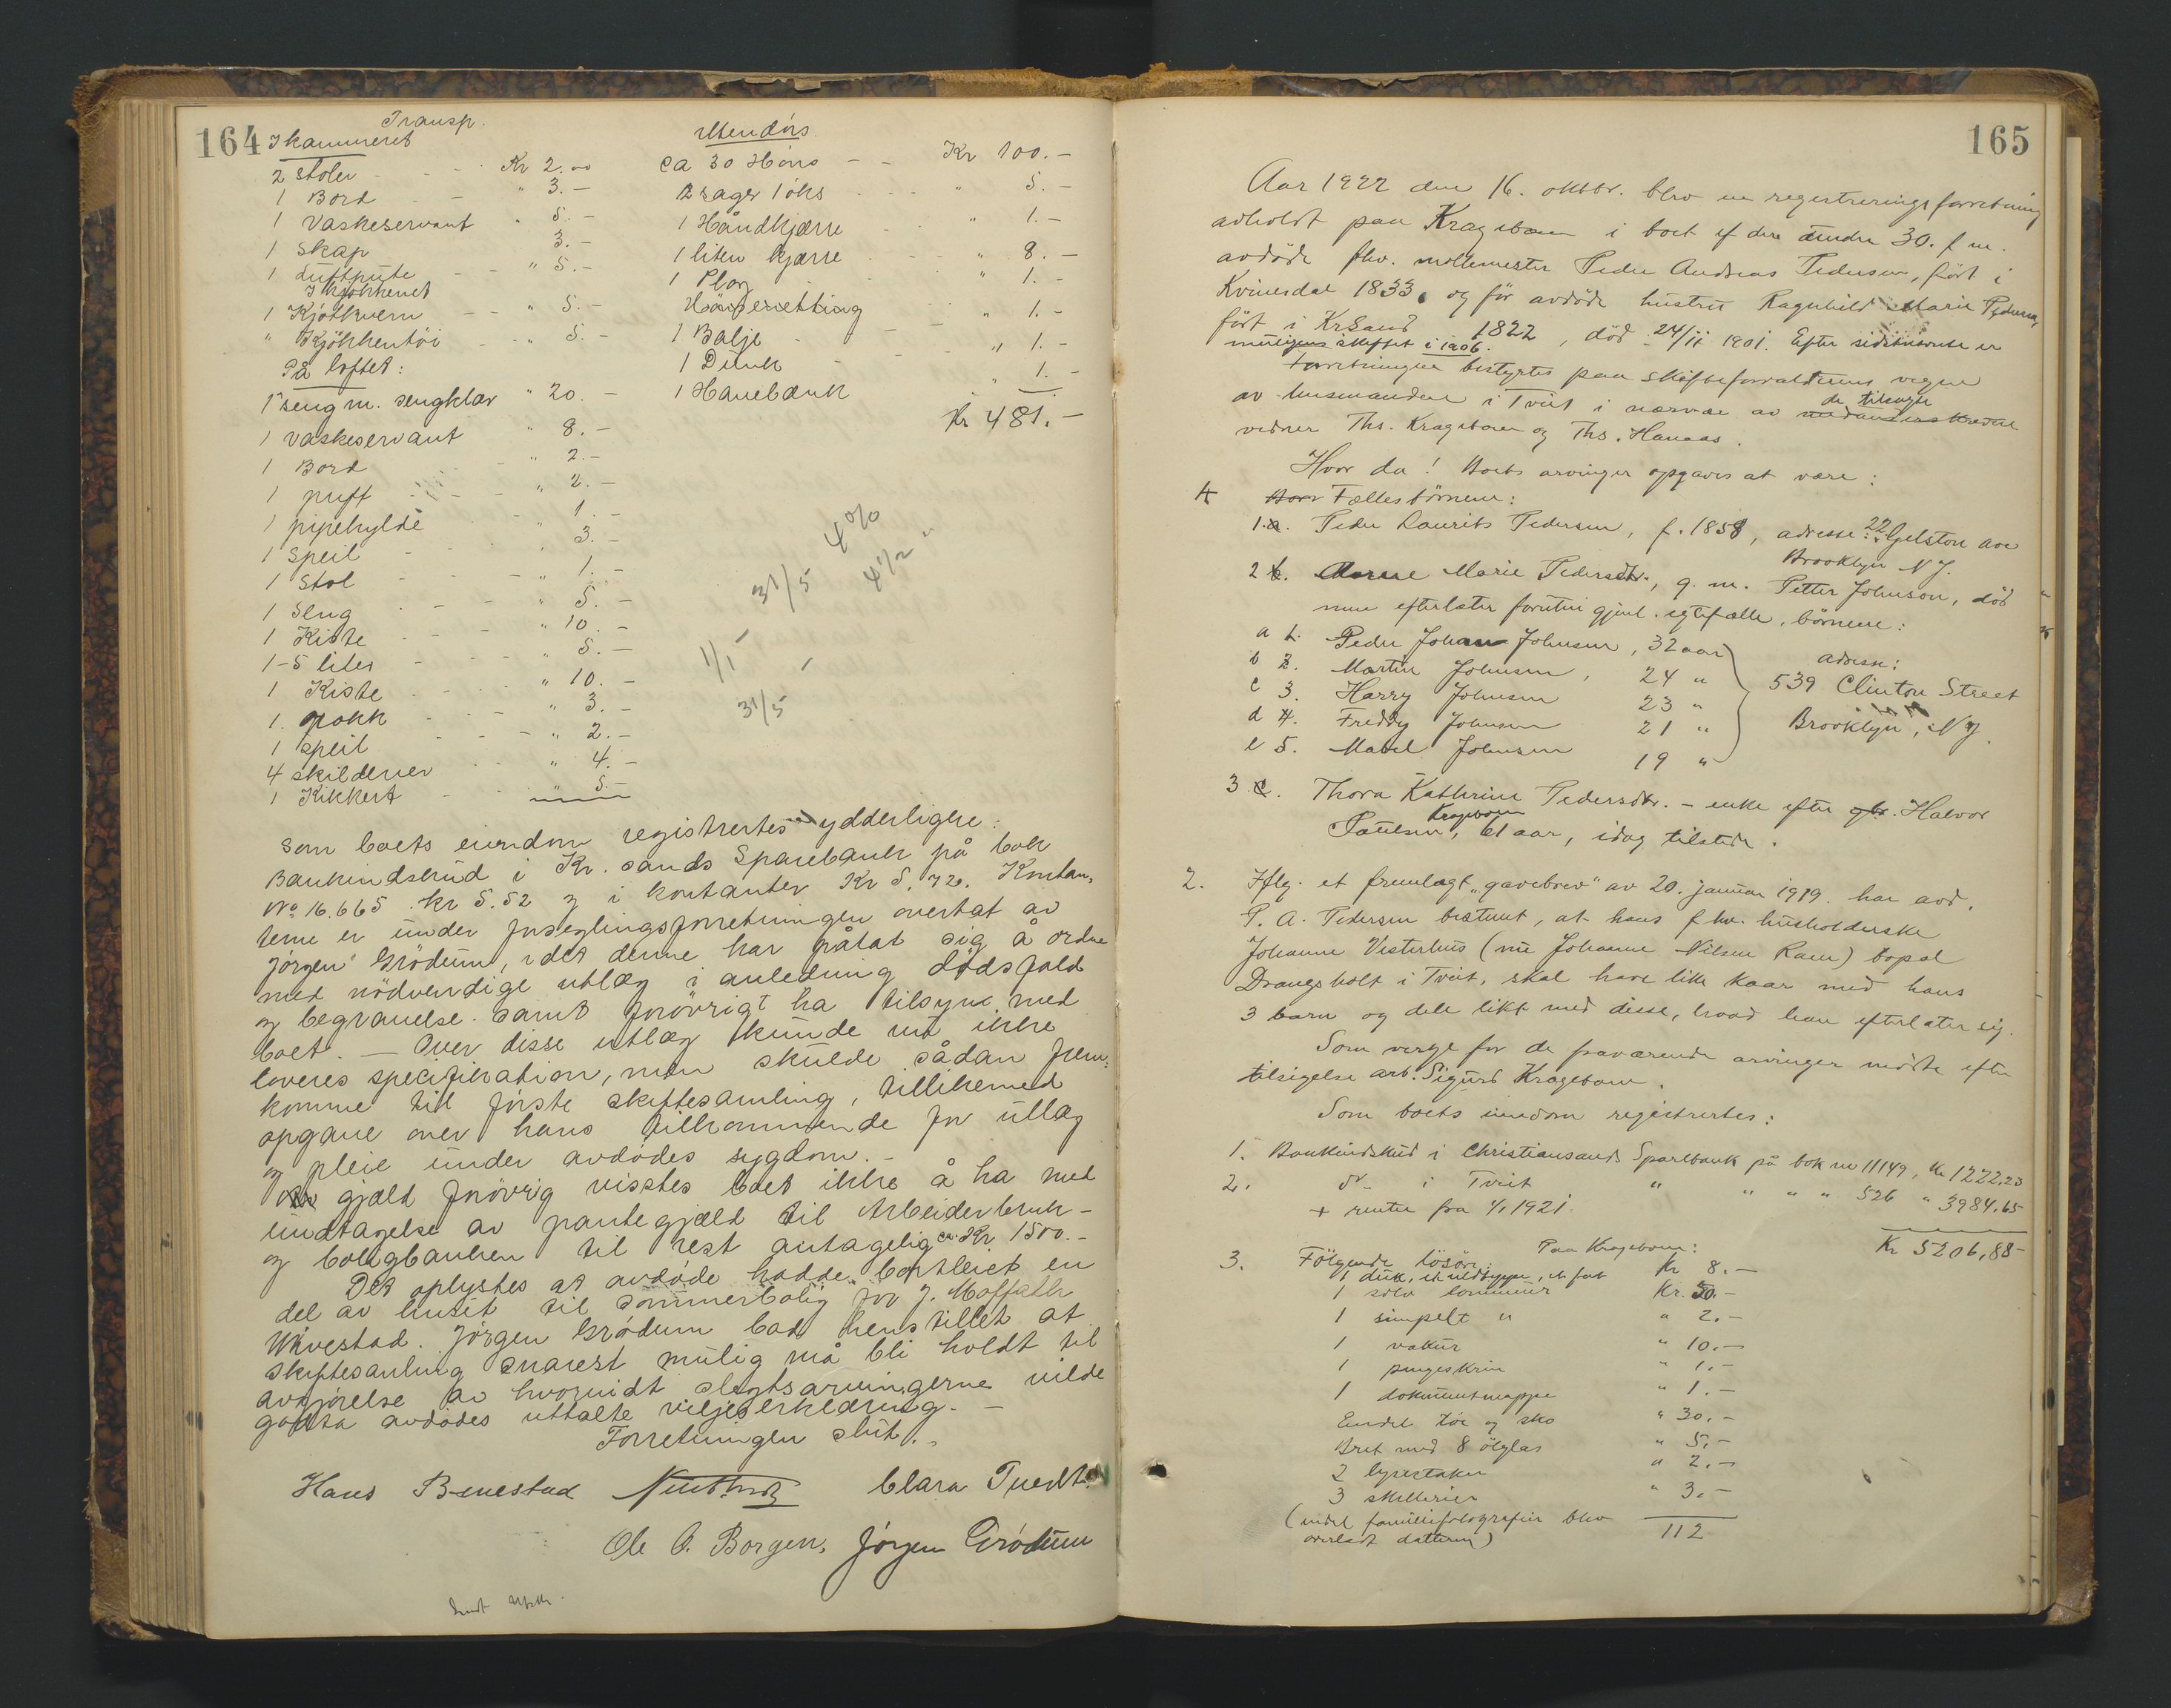 164
Transp.
I kammeret
2 stoler - - Kr 2.00
1 Bord - - " 3.-
1 Vaskeservant " 5.-
1 Skap 3.-
1 Luftpute - - " 5.-
I kjøkkenet
1 Kjøtkvern - - " 5.-
" Kjökkentöi - - " 5.-
På loftet:
1 seng m. sengklær " 20.-
1 Vaskeservant " 8.-
1 Bord " 2.-
1 puff " 2.-
1 pipehylde 1.-
1 Speil " 3.-
1 Stol " 1.-
1 Seng " 5.-
1 Kiste " 10.-
1-5 liter 5.-
1 Kiste " 10.-
1 pokk " 3.-
1 speil " 2.-
4 skilderier " 4.-
1 Kikkert " 5.-
Utendörs.
ca 30 Höns - - Kr 100.-
2 sager 1 öks - - " 5.-
1 Håndkjærre " 1.-
1 liten kjærre " 8.-
1 Plog " 1.-
Hönsenetting " 1.-
1 Balje " 1.-
1 Dunk " 1.-
1 Havebænk
Kr 481.-
4%
31/5 4 1/2 "
1/1 -
31/5
Som boets eiendom registrertes ydderligere:
Bankindskud i Kr.sands Sparebank på bok
No 16.665 kr 5.52 og i kontanter Kr 5.72. Kontan-
terne er under forseglingsforretningen overtat av
Jörgen Grödum, idet denne har påtat sig å ordne
med nödvendige utlæg i anledning dödsfald
og begravelse samt forövrigt ha tilsyn med
boet. - Over disse utlæg kunde nu ikke
leveres specifikation, men skulde sådan frem-
komme til förste skiftesamling, tillikemed
opgave over hans tilkommende for utlæg
og pleie under avdödes sygdom.-
gjæld forövrig visstes boet ikke å ha med
undtagelse av pantegjæld til Arbeiderbruk-
og boligbanken til rest antagelig ca. Kr 1500.-
Det oplystes at avdöde hadde bortleiet en
del av huset til sommerbolig for J. Moffath
Wivestad. Jörgen Grödum bad henstillet at
skiftesamling snarest mulig må bli holdt til
avgjörelse av hvorvidt slegtsarvingerne vilde
godta avdödes uttalte viljeserklæring.-
Forretningen slut.
Hans Benestad Clara Tvedt
Ole O. Borgen, Jörgen Grödum
165
Aar 1922 den 16. oktbr. blev en registreringsforretning
avholdt paa Krageboen i boet efter den under 30. f.m.
avdöde fhv. möllemester Peder Andreas Pedersen, født i
Kvinesdal 1833, og før avdöde hustru Ragnhild Marie Pedersen,
født i Kr.Sand 1822, død 24/11 1901. Efter sidstnævnte er
muligens skiftet i 1906.
Forretningen bestyrtes paa skifteforvalterens vegne
av lensmanden i Tveit i nærvær av de tilsagte
vidner Ths. Krageboen og Ths. Hanaas.
Hvor da! Boets arvinger opgaves at være:
A Fællesbörnene:
1.a. Peder Laurits Pedersen, f. 1858, adresse: 22 Gelston ave
Brooklyn N.J.
2 b. Marie Pedersdtr., g. m. Petter Johnson, död
men efterlater foruten gjenl. egtefælle, börnene:
a 1. Peder Johan Johnsen, 32 aar
b 2. Martin Johnsen, 24 "
c 3. Harry Johnsen 23 "
d 4. Freddy Johnsen 21 "
e 5. Mabel Johnsen 19 "
adresse:
539 Clinton Street
Brooklyn, N.J.
3 c. Thora Kathrine Pedersdtr. - enke efter gbr. Halvor
Poulsen, Krageboen 61 aar, idag tilstede.
2. Iflg. et fremlagt "gavebrev" av 20. januar 1919 har avd.
P. A. Pedersen bestemt, at hans fhv. husholderske
Johanne Vesterhus (nu Johanne Nilsen Raen) bopæl
Drangsholt i Tveit, skal have like kaar med hans
3 barn og dele likt med disse, hvad han efterlater sig.
Som verge for de fraværende arvinger mødte efter
tilsigelse arb. Sigurd Krageboen.
Som boets eiendom registrertes:
1. Bankindskud i Christiansands Sparebank på bok nr 11149, Kr 1222.23
2. do i Tveit " " " " 526 " 3984.65
+ renter fra 1/1 1921.
Kr 5206,88-
3. Følgende lösöre: Paa Krageboen:
1 duk, et uldteppe, et fat Kr 8.-
1 sölv lommeur Kr. 50.-
1 simpelt " " 2.-
1 vækur " 10.-
1 pengeskrin " 1.-
1 dokumentmappe " 1.-
Endel töi og sko " 30.-
Bret med 8 ölglas " 5.-
2 lysestaker " 2.-
3 skillerier " 3.-
(endel familiefotografier blev
overladt datteren)
112